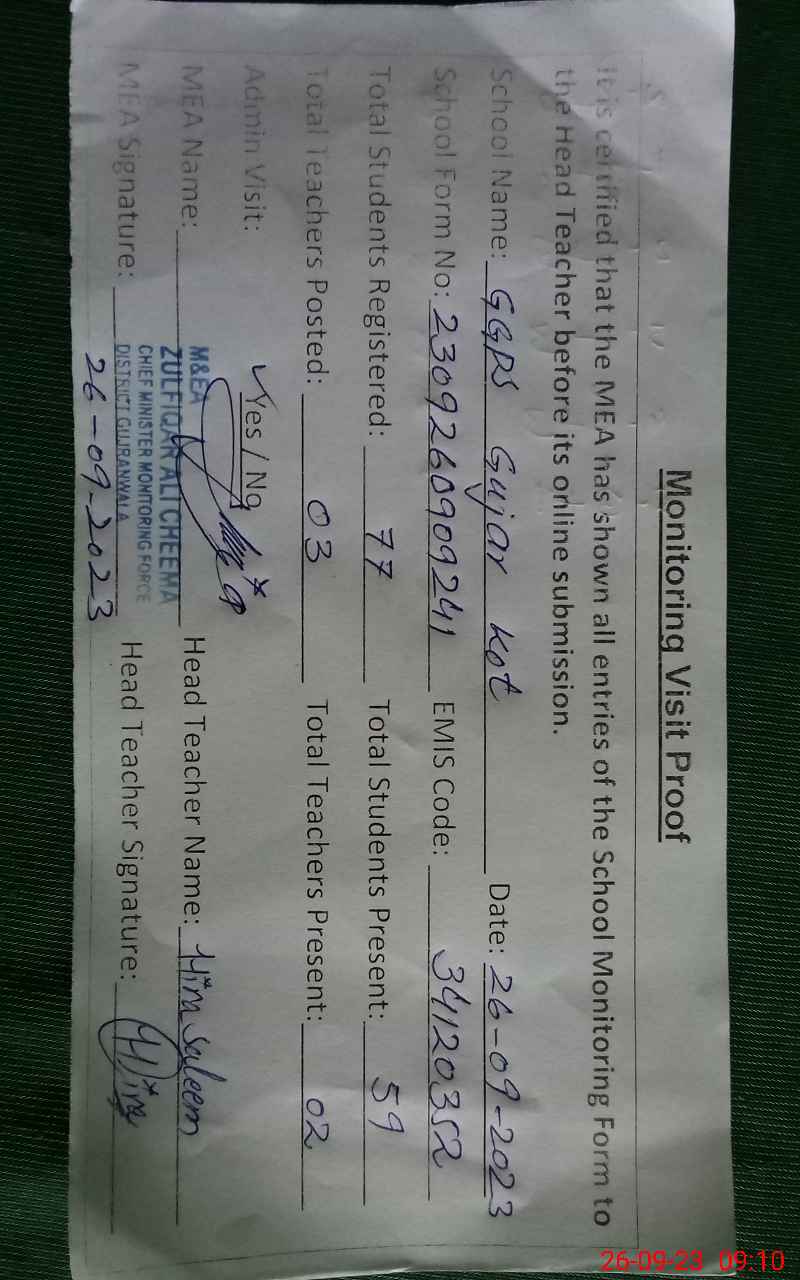 Monitoring Visit Proof
It is certified that the MEA has shown all entries of the School Monitoring Form to
the Head Teacher before its online submission.
School Name: GGPS Gujar Kot Date: 26-09-2023
School Form No: 2309260909241 EMIS Code: 34120352
Total Students Registered: 77 Total Students Present: 59
Total Teachers Posted: 03 Total Teachers Present: 02
Admin Visit: ✓Yes / No
M&EA
MEA Name: ZULFIQAR ALI CHEEMA Head Teacher Name: Hira Saleem
CHIEF MINISTER MONITORING FORCE
MEA Signature: DISTRICT GUJRANWALA Head Teacher Signature: Hira
26-09-2023
26-09-23 09:10